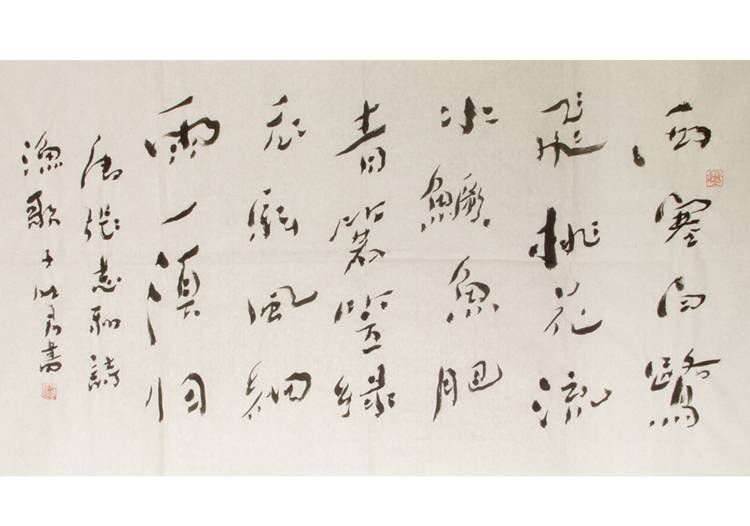 西塞白鷺
飛桃花流
水鱖魚肥
青箬笠緑
衣斜風細
雨不須归
唐張志和詩
漁歌子書